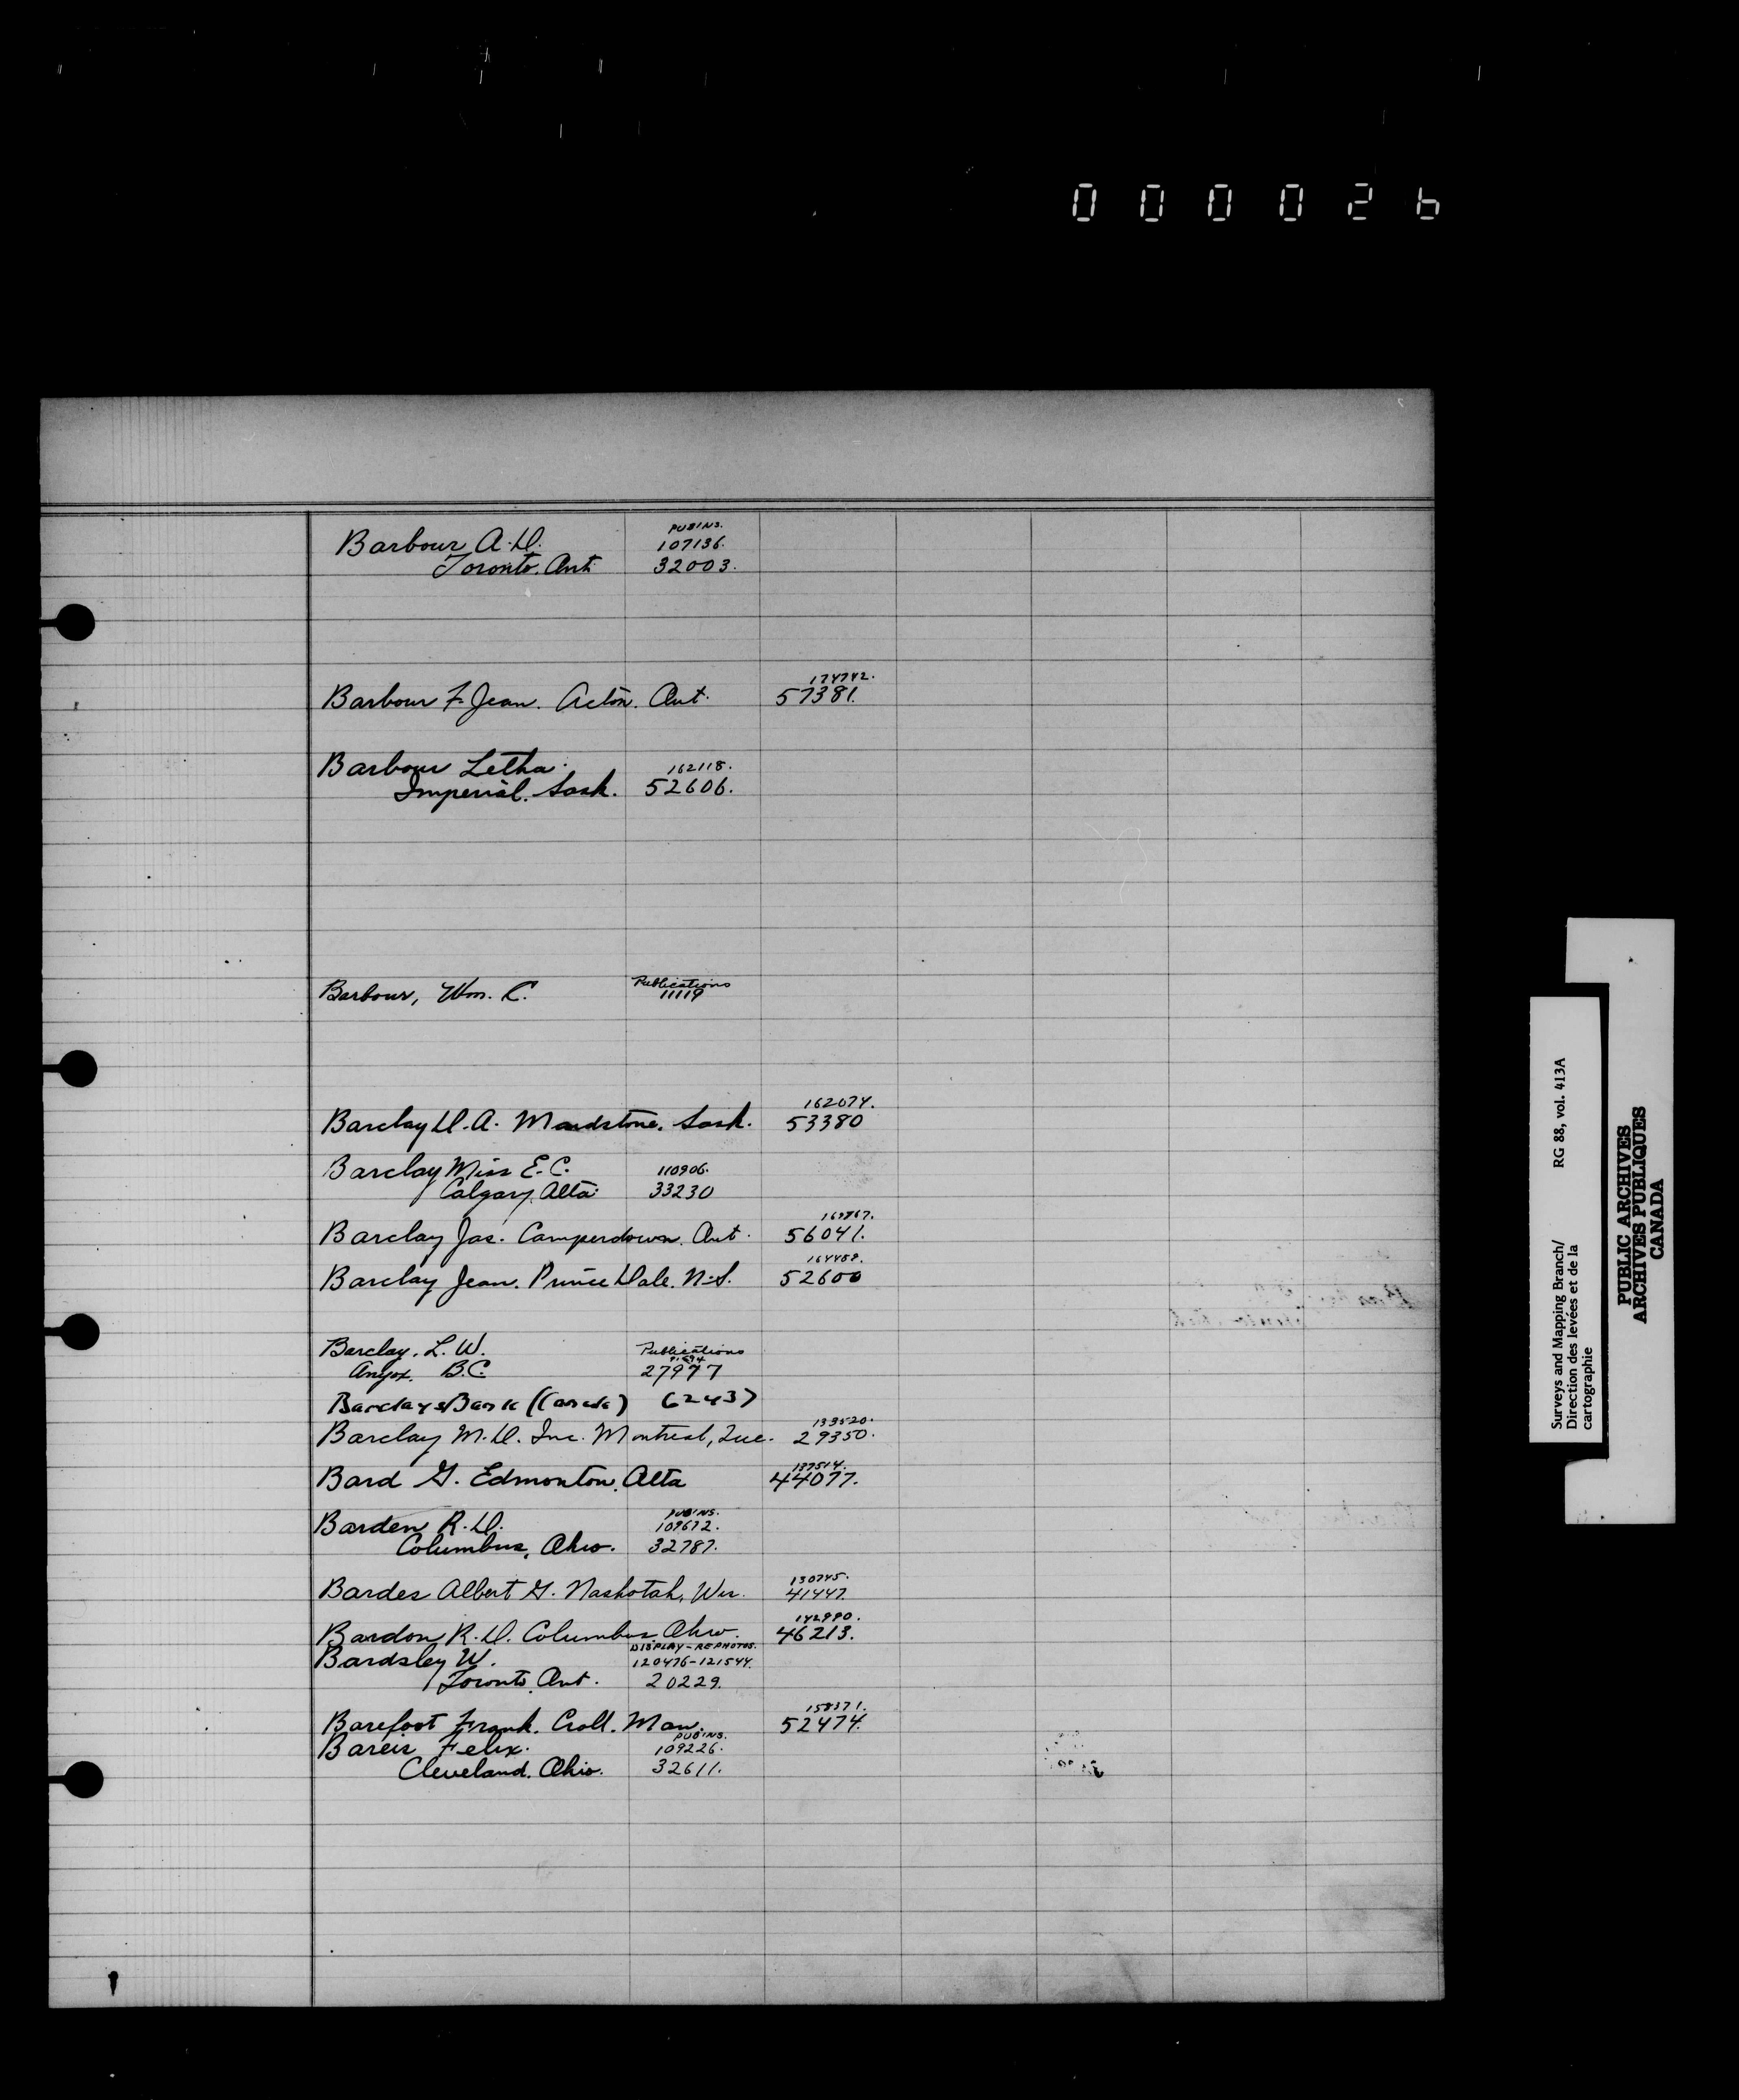 000026
PUB'NS.
Barbour A.D. 107136.
Toronto. Ont. 32003.
174742.
Barbour F. Jean. Acton. Ont. 57381.
Barbour Letha. 162118.
Imperial. Sask. 52606.
Publications
Barbour, Wm. C. 11119
162074.
Barclay D.A. Maidstone. Sask. 53380
Barclay Miss E.C. 110906.
Calgary. Alta. 33230
Barclay Jas. Camperdown. Ont. 56041.
Barclay Jean. Prince Dale. N.S. 52600
Barclay, L. W. Publications
Anyox. B.C. 27977
Barclays Bank (Canada) 62437
133520.
Barclay M.D. Inc. Montreal, Que. 29350.
137514.
Bard G. Edmonton. Alta 44077.
PUB'NS.
Barden R.D. 109672.
Columbus, Ohio. 32787.
130745.
Bardes Albert G. Nashotah, Wis. 41447.
142990.
Bardon R.D. Columbus Ohio. 46213.
DISPLAY-REPHOTOS.
Bardsley W. 120476-121544.
Toronto. Ont. 20229.
158371.
Barefoot Frank. Croll. Man. 52474.
PUB'NS.
Bareis Felix. 109226.
Cleveland. Ohio. 32611.
Surveys and Mapping Branch/ RG 88, vol. 413A
Direction des levées et de la
cartographie
PUBLIC ARCHIVES
ARCHIVES PUBLIQUES
CANADA